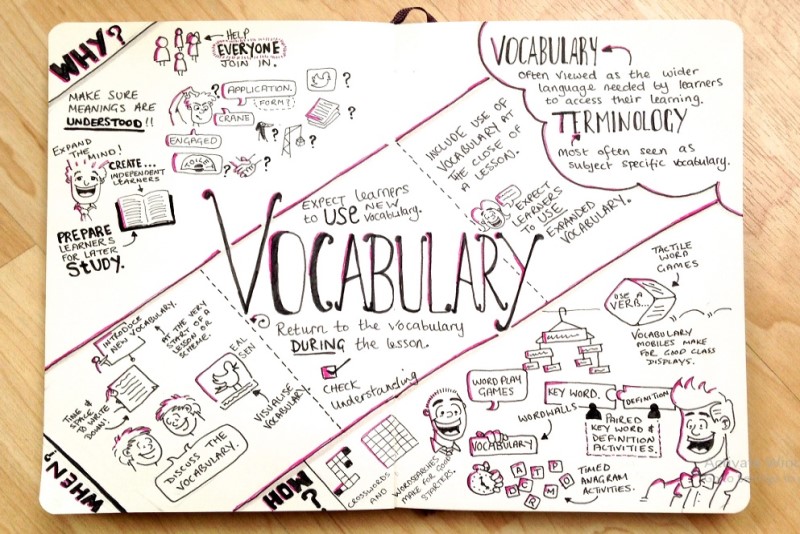 WHY?
HELP
EVERYONE
JOIN IN.
MAKE SURE
MEANINGS ARE
UNDERSTOOD!!
?
APPLICATION.
FORM?
CRANE
ENGAGED
TOILET
?
?
?
?
?
EXPAND
THE MIND!
CREATE...
INDEPENDENT
LEARNERS
PREPARE
LEARNERS
FOR LATER
STUDY.
VOCABULARY
often viewed as the wider
language needed by learners
to access their learning.
TERMINOLOGY
most often seen as
subject specific vocabulary.
INCLUDE USE OF
VOCABULARY AT
THE CLOSE OF
A LESSON.
EXPECT
LEARNERS
TO USE
EXPANDED
VOCABULARY.
EXPECT learners
to USE NEW
vocabulary.
VOCABULARY
Return to the vocabulary
DURING the lesson.
CHECK
Understanding
INTRODUCE
NEW VOCABULARY.
AT THE VERY
START OF A
LESSON OR
SCHEME.
TIME &
SPACE
TO WRITE
DOWN!
EAL
SEN
VISUALISE
VOCABULARY
DISCUSS THE
VOCABULARY.
WHEN?
HOW?
CROSSWORDS
AND
WORDSEARCHES
MAKE FOR GOOD
STARTERS.
TACTILE
WORD
GAMES
USE A
VERB...
VOCABULARY
MOBILES MAKE
FOR GOOD CLASS
DISPLAYS.
WORD PLAY
GAMES
KEY WORD.
DEFINITION
WORDWALLS
VOCABULARY
PAIRED
KEY WORD &
DEFINITION
ACTIVITIES.
A T P
D C R M O
TIMED
ANAGRAM
ACTIVITIES.